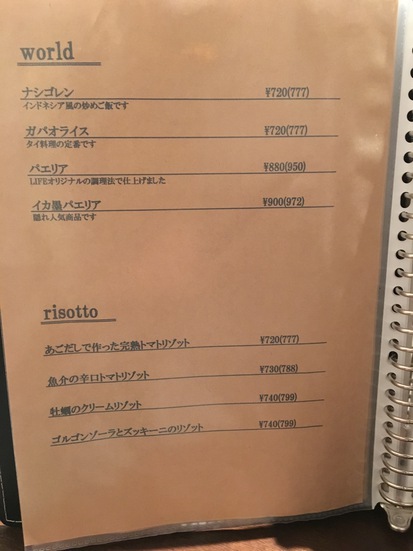 world
ナシゴレン ¥720(777)
インドネシア風の炒めご飯です
ガパオライス ¥720(777)
タイ料理の定番です
パエリア ¥880(950)
LIFEオリジナルの調理法で仕上げました
イカ墨パエリア ¥900(972)
隠れ人気商品です
risotto
あごだしで作った完熟トマトリゾット ¥720(777)
魚介の辛口トマトリゾット ¥730(788)
牡蠣のクリームリゾット ¥740(799)
ゴルゴンゾーラとズッキーニのリゾット ¥740(799)